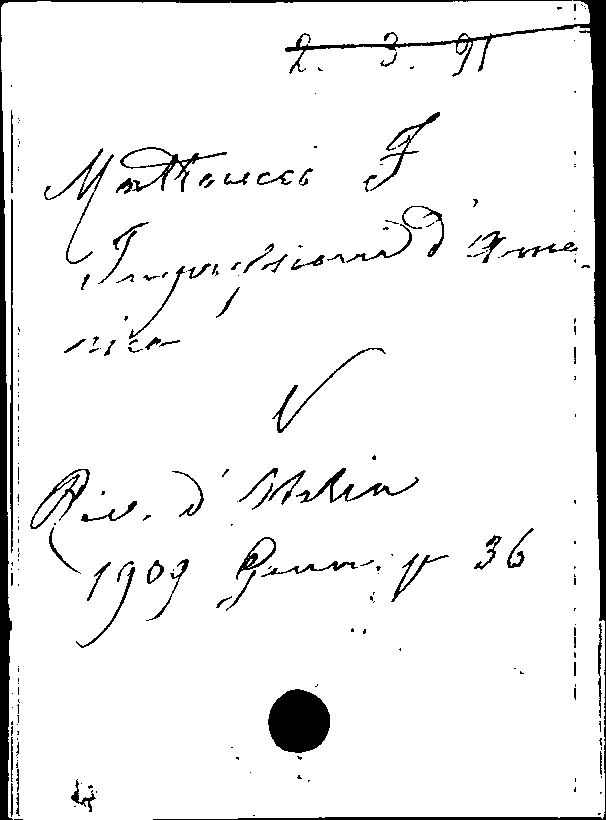 2. 3. 91
Matteucci F
Impressioni d'Ame-
rica
V
Riv. d'Italia
1909 Genn. p 36